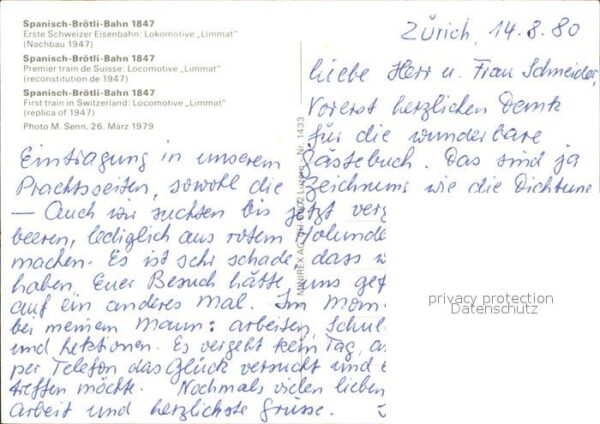 Spanisch-Brötli-Bahn 1847
Erste Schweizer Eisenbahn: Lokomotive „Limmat"
(Nachbau 1947)
Spanisch-Brötli-Bahn 1847
Premier train de Suisse: Locomotive „Limmat"
(reconstitution de 1947)
Spanisch-Brötli-Bahn 1847
First train in Switzerland: Locomotive „Limmat"
(replica of 1947)
Photo M. Senn, 26. März 1979
Zürich, 14.8.80
Liebe Herr u. Frau Schneider,
Vorerst herzlichen Dank
für die wunderbare
Eintragung in unserem Gästebuch. Das sind ja
Prachtsseiten, sowohl die Zeichnung wie die Dichtung
— Auch wir suchten bis jetzt verg
beeren, lediglich aus rotem Holunde
machen. Es ist sehr schade, dass w
haben, Euer Besuch hätte uns gef
auf ein anderes Mal. Im Mom
bei meinem Mann: arbeiten, Schul
und Lektionen. Es vergeht kein Tag, a
per Telefon das Glück versucht und e
treffen möchte. Nochmals vielen lieben
Arbeit und herzlichste Grüsse.
MINIREX AG Luzern Nr. 1433
privacy protection
Datenschutz